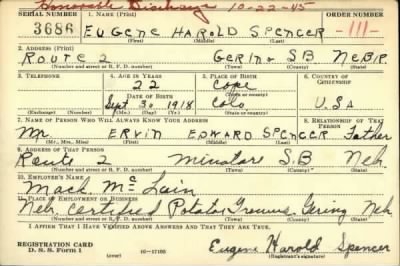 Honorable Discharge 10-22-45
SERIAL NUMBER 1. NAME (Print) ORDER NUMBER
3686 EUGENE HAROLD SPENCER -111-
(First) (Middle) (Last)
2. ADDRESS (Print)
ROUTE 2 GERING S.B NEBR.
(Number and street or R. F. D. number) (Town) (County) (State)
3. TELEPHONE 4. AGE IN YEARS 5. PLACE OF BIRTH 6. COUNTRY OF CITIZENSHIP
22 Cope
DATE OF BIRTH (Town or county)
Sept. 30, 1918 Colo U.S.A
(Exchange) (Number) (Mo.) (Day) (Yr.) (State or country)
7. NAME OF PERSON WHO WILL ALWAYS KNOW YOUR ADDRESS 8. RELATIONSHIP OF THAT PERSON
Mr. ERVIN EDWARD SPENCER Father
(Mr., Mrs., Miss) (First) (Middle) (Last)
9. ADDRESS OF THAT PERSON
Route 2 Minatare S.B Neb
(Number and street or R. F. D. number) (Town) (County) (State)
10. EMPLOYER'S NAME
Mack Mc Lain
11. PLACE OF EMPLOYMENT OR BUSINESS
Neb Certified Potato Growers, Gering Neb
(Number and street or R. F. D. number) (Town) (County) (State)
I AFFIRM THAT I HAVE VERIFIED ABOVE ANSWERS AND THAT THEY ARE TRUE.
REGISTRATION CARD
D. S. S. Form 1 (over) 16-17105
Eugene Harold Spencer
(Registrant's signature)